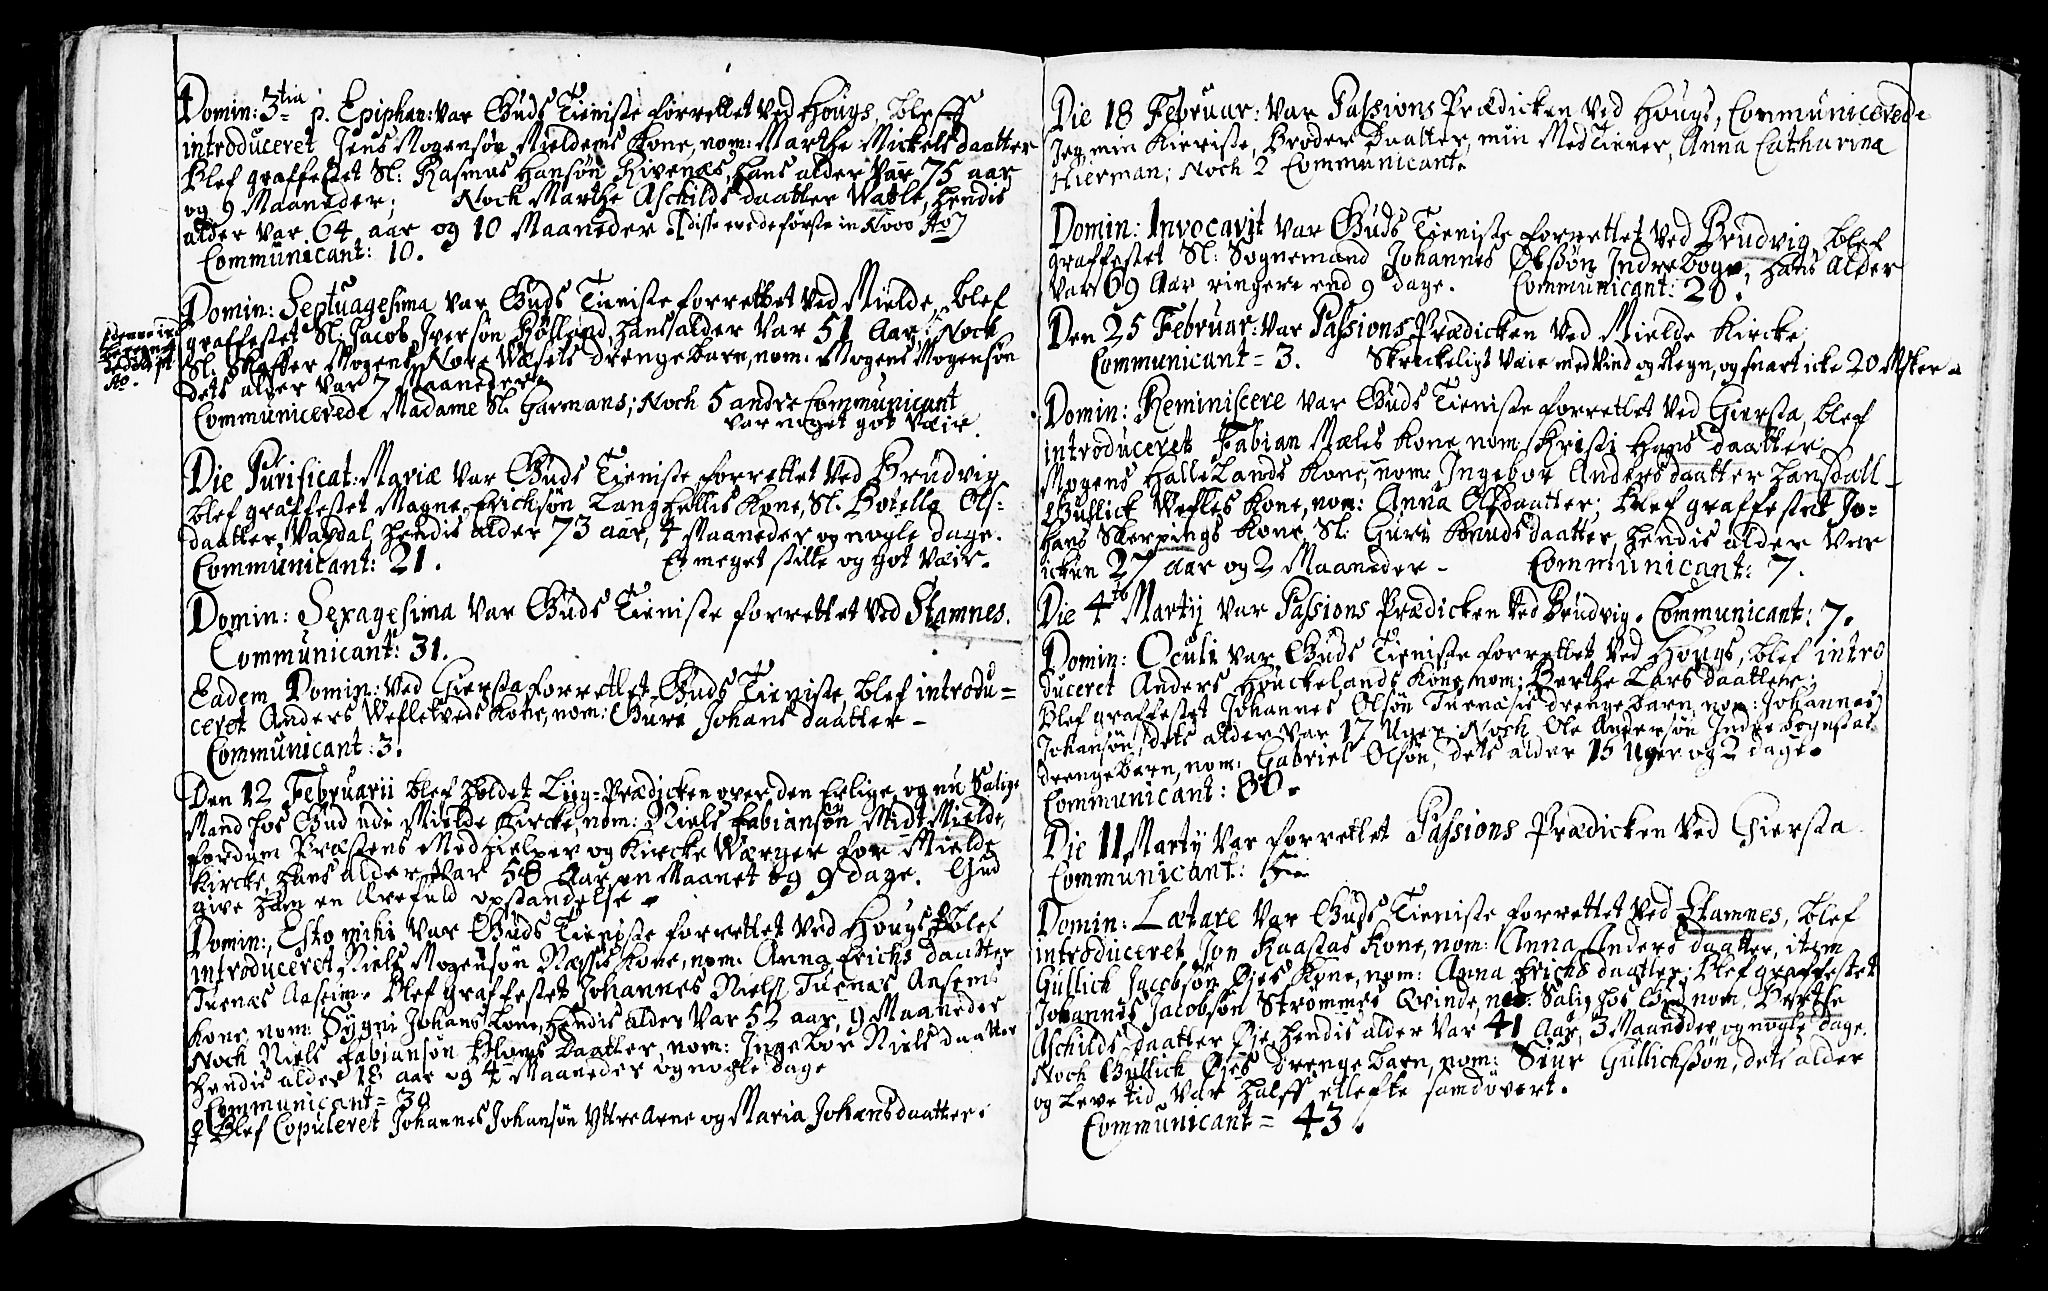 Domin: 3tia p. Epiphan: var Guds Tieniste forrettet ved Hougs, bleff
introduceret Jens Mogensøn Mieldems Kone, nom: Marthe Mickels daatter
Blef graffestet Sl: Rasmus Hansøn Rivenæs, hans alder var 75 aar
og 9 Maaneder; Noch Marthe Aschilds daatter Watle, hendis
alder var 64 aar og 10 Maaneder [disse ere de første in Novo Ao]
Communicant: 10.
Domin: Septuagesima var Guds Tieniste forrettet ved Mielde, blef
graffestet Sl: Jacob Ipersøn Hølland, hans alder var 51 Aar, Noch
Sl: Mogens Nore Wæsets drengebarn, nom: Mogens Mogensøn
dets alder var 7 Maaneder
Communicerede Madame Sl. Garmans; Noch 5 andre Communicant
var noget got Væir.
Die Purificat: Mariæ var Guds Tieniste forrettet ved Brudvig
blef graffestet Magne Erichsøn Langhellis Kone, Sl. Botella Ols-
daatter Vaxdal, hendis alder 73 aar, 4 Maaneder og nogle dage.
Communicant: 21. Et meget stille og got Væir.
Domin: Sexagesima var Guds Tieniste forrettet ved Stamnes.
Communicant: 31.
Eadem Domin: ved Giersta forrettet Guds Tieniste, blef introdu=
ceret Anders Wefletveds Kone, nom: Gure Johans daatter -
Communicant: 3.
Den 12 Februarii blef holdet Liig-Prædicken over den Erlige, og nu Salige
Mand hos Gud udi Mielde Kircke, nom: Niels Fabiansøn Midt Mielde,
fordum Præstens Medhielper og Kircke Wærger for Mielde
Kircke, hans alder var 58 Aar, en Maanet og 9 dage. Gud
give ham en Ærefuld opstandelse -
Domin: Esto mihi var Guds Tieniste forrettet ved Hougs ‡ Blef
introduceret Niels Mogensøn Næssis Kone, nom: Anna Erichs daatter
Tuenæs Aaseim. Blef graffestet Johannes Niels Tuenæs Aasems
Kone, nom: Sygni Johans daater, hendis alder var 52 aar, 9 Maaneder
Noch Niels Fabiansøn Daatter, nom: Ingebor Niels daatter
hendis alder 18 aar og 4 Maaneder og nogle dage
Communicant = 30
‡ Blef Copuleret Johannes Johansøn Yttre Arne og Maria Johansdaatter.
Die 18 Februar: var Passions Prædicken ved Hougs, Communicerede
Jeg min Kieriste, Broder Daatter, min Medtiener, Anna Catharina
Hierman; Noch 2 Communicant.
Domin: Invocavit var Guds Tieniste forrettet ved Brudvig blef
graffestet Sl: Sognemand Johannes Olssøn Indre Boge, hans alder
var 69 Aar ringere end 9 dage. Communicant: 20.
Den 25 Februar: var Passions Prædicken ved Mielde Kircke,
Communicant = 3. Skreckeligt Væir med Vind og Regn, og snart icke 20 Msker -
Domin: Reminiscere var Guds Tieniste forrettet ved Giersta, blef
introduceret Fabian Mæles Kone, nom: Kristi Hans daatter,
Mogens Hallelands Kone, nom: Ingebor Anders daatter Hansdall -
Gullick Wefles Kone, nom: Anna Olsdaatter; blef graffestet Jo=
hans Skreppings Kone, Sl: Guri Knuds daatter, hendis alder var
icken 27 aar og 2 Maaneder - Communicant: 7.
Die 4to Martij var Passions Prædicken ved Brudvig. Communicant: 7.
Domin: Oculi var Guds Tieniste forrettet ved Hougs, blef intro
duceret Anders Houckelands Kone, nom: Berthe Lars daatter;
Blef graffestet Johannes Olsøn Tuenæsis drengebarn, nom: Johannes
Johansøn, dets alder var 17 Uger. Noch Ole Andersøn Indre Bognestas
drengebarn, nom: Gabriel Olsøn, dets alder 15 Uger og 2 dage.
Communicant: 80.
Die 11 Martij var forrettet Passions Prædicken ved Giersta
Communicant: 5.
Domin: Lætare var Guds Tieniste forrettet ved Stamnes, blef
introduceret Jon Kaastas Kone, nom: Anna Anders daatter, item
Gullich Jacobsøn Øjes Kone, nom: Anna Erichs daatter; blef graffestet
Johannes Jacobsøn Strømmes Qvinde, nu Salig hos Gud, nom: Berthe
Aschilds daatter Øje, hendis alder var 41 Aar, 3 Maaneder og nogle dage.
Noch Gullich Øjes drengebarn, nom: Siur Gullichssøn, dets alder
og leve tid var halff ellefte samdøvert.
Communicant = 43.